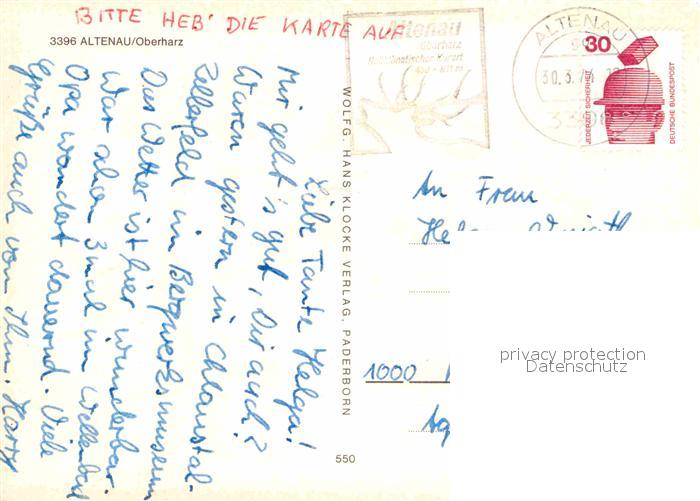 BITTE HEB' DIE KARTE AUF
3396 ALTENAU/Oberharz
Liebe Tante Helga!
Mir geht's gut, Dir auch?
Waren gestern in Clausthal-
Zellerfeld im Bergwerksmuseum
Das Wetter ist hier wunderbar.
War schon 3mal im Wellenbad
Opa wandert dauernd. Viele
Grüße auch von Ihm. Harry
WOLFG. HANS KLOCKE VERLAG, PADERBORN
550
Altenau
Oberharz
Heilklimatischer Kurort
ALTENAU
30.3.
30
JEDERZEIT SICHERHEIT
DEUTSCHE BUNDESPOST
An Frau
1000
privacy protection
Datenschutz